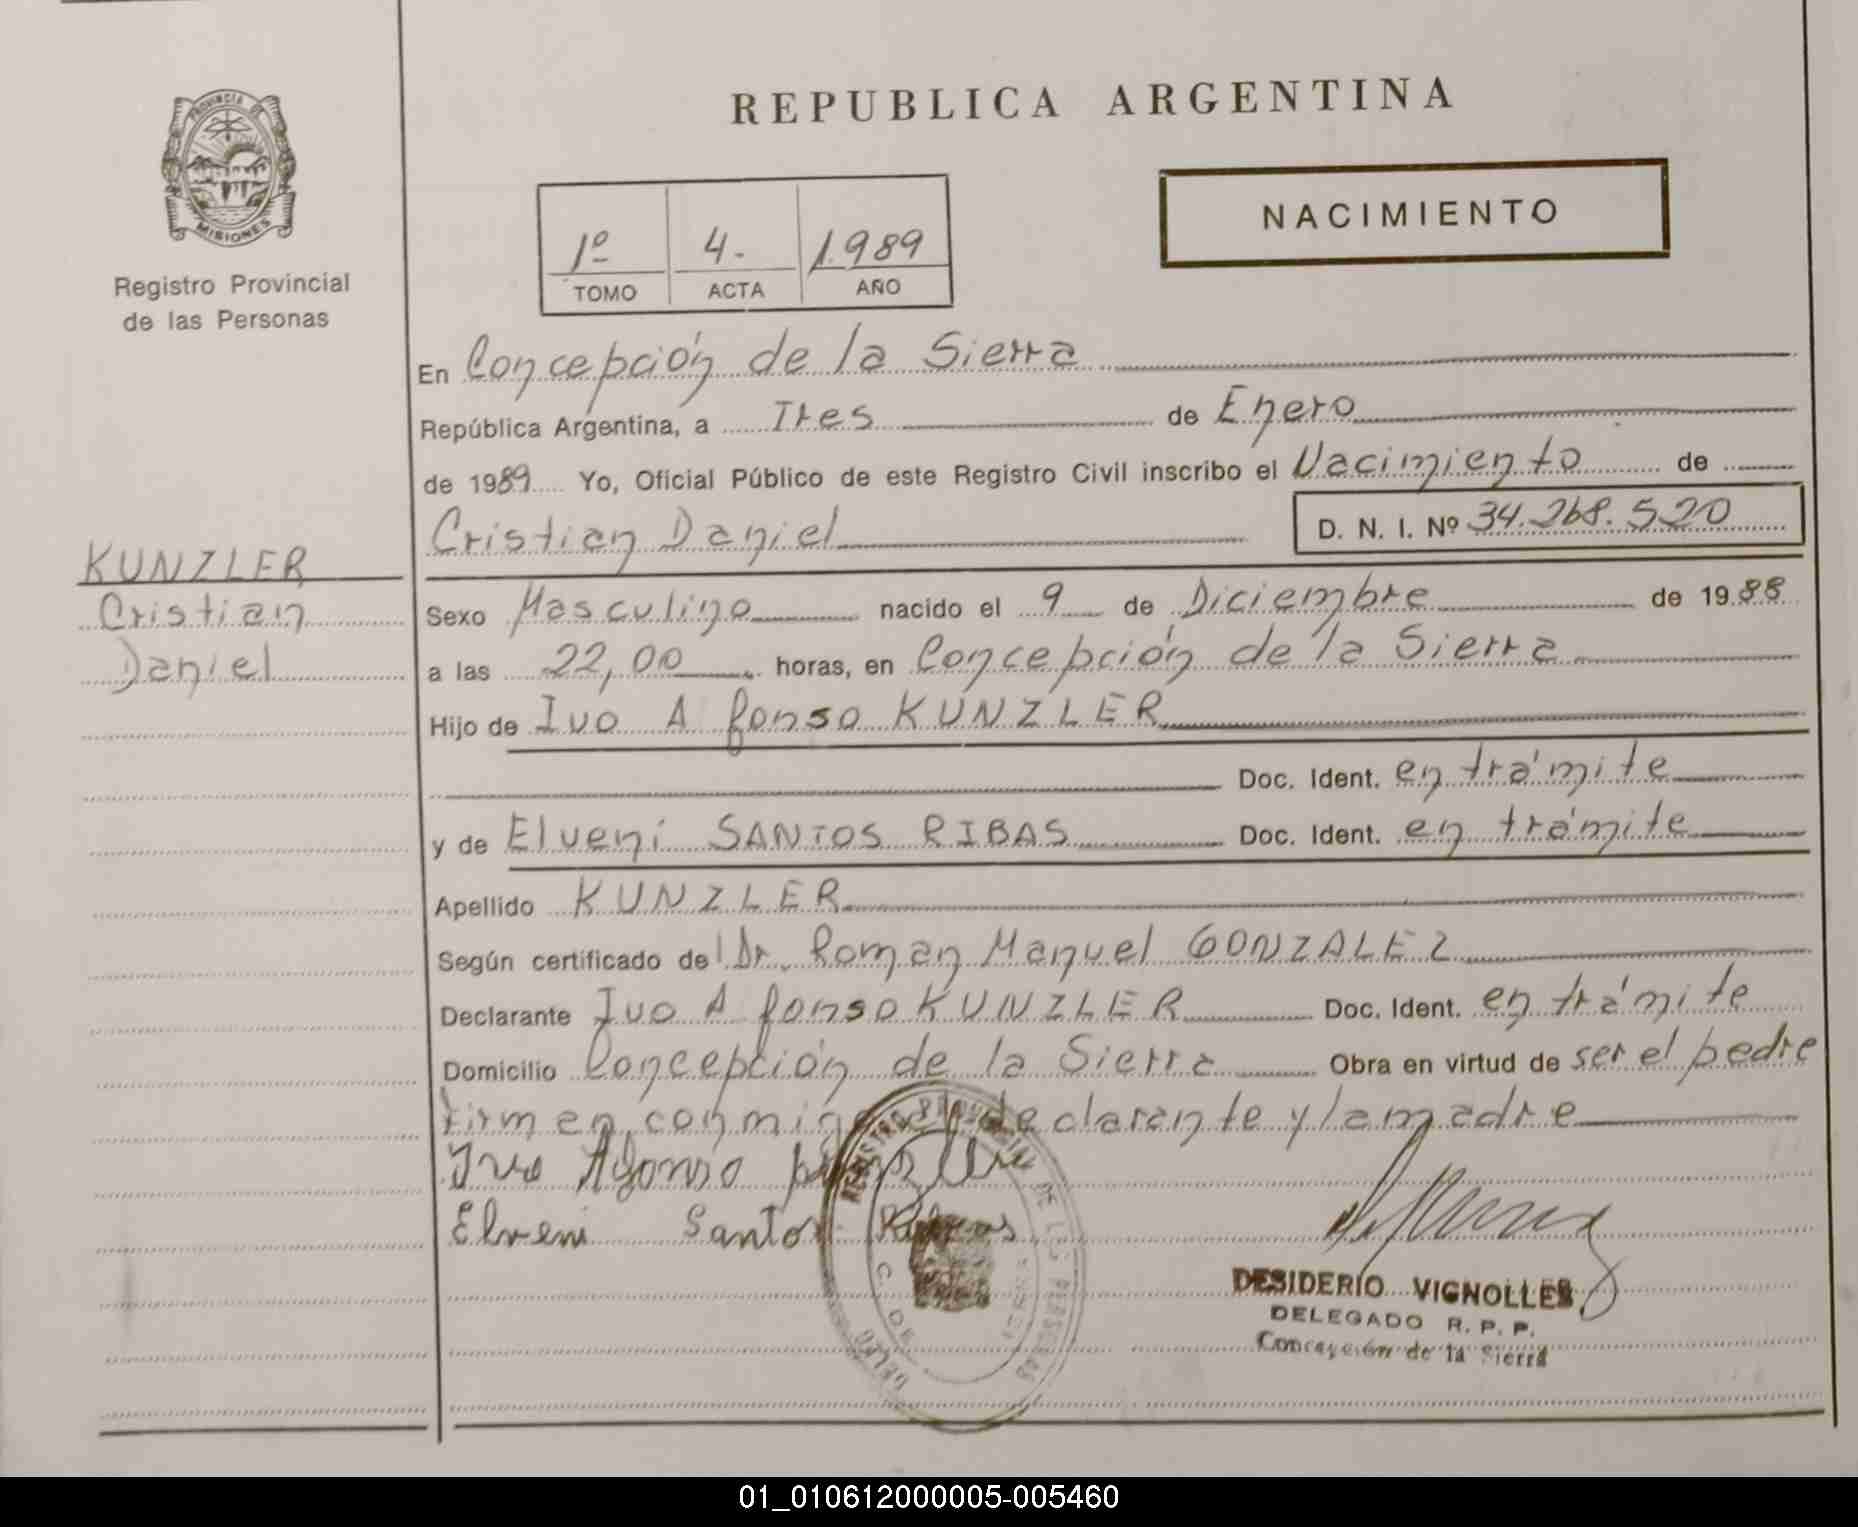 PROVINCIA DE
MISIONES
Registro Provincial
de las Personas
REPUBLICA ARGENTINA
NACIMIENTO
1º 4- 1.989
TOMO ACTA AÑO
En Concepción de la Sierra
República Argentina, a Tres de Enero
de 1989 Yo, Oficial Público de este Registro Civil inscribo el Nacimiento de
Cristian Daniel D. N. I. Nº 34.268.520
KUNZLER
Cristian
Daniel
Sexo Masculino nacido el 9 de Diciembre de 1988
a las 22,00 horas, en Concepción de la Sierra
Hijo de Ivo Afonso KUNZLER
Doc. Ident. en trámite
y de Elveni SANTOS RIBAS Doc. Ident. en trámite
Apellido KUNZLER
Según certificado de Dr. Roman Manuel GONZALEZ
Declarante Ivo Afonso KUNZLER Doc. Ident. en trámite
Domicilio Concepción de la Sierra Obra en virtud de ser el padre
Firman conmigo el declarante y la madre
Ivo Afonso
Elveni Santos Ribas
REGISTRO PROVINCIAL DE LAS PERSONAS
C. DE
DESIDERIO VIGNOLLES
DELEGADO R. P. P.
Concepción de la Sierra
01_010612000005-005460